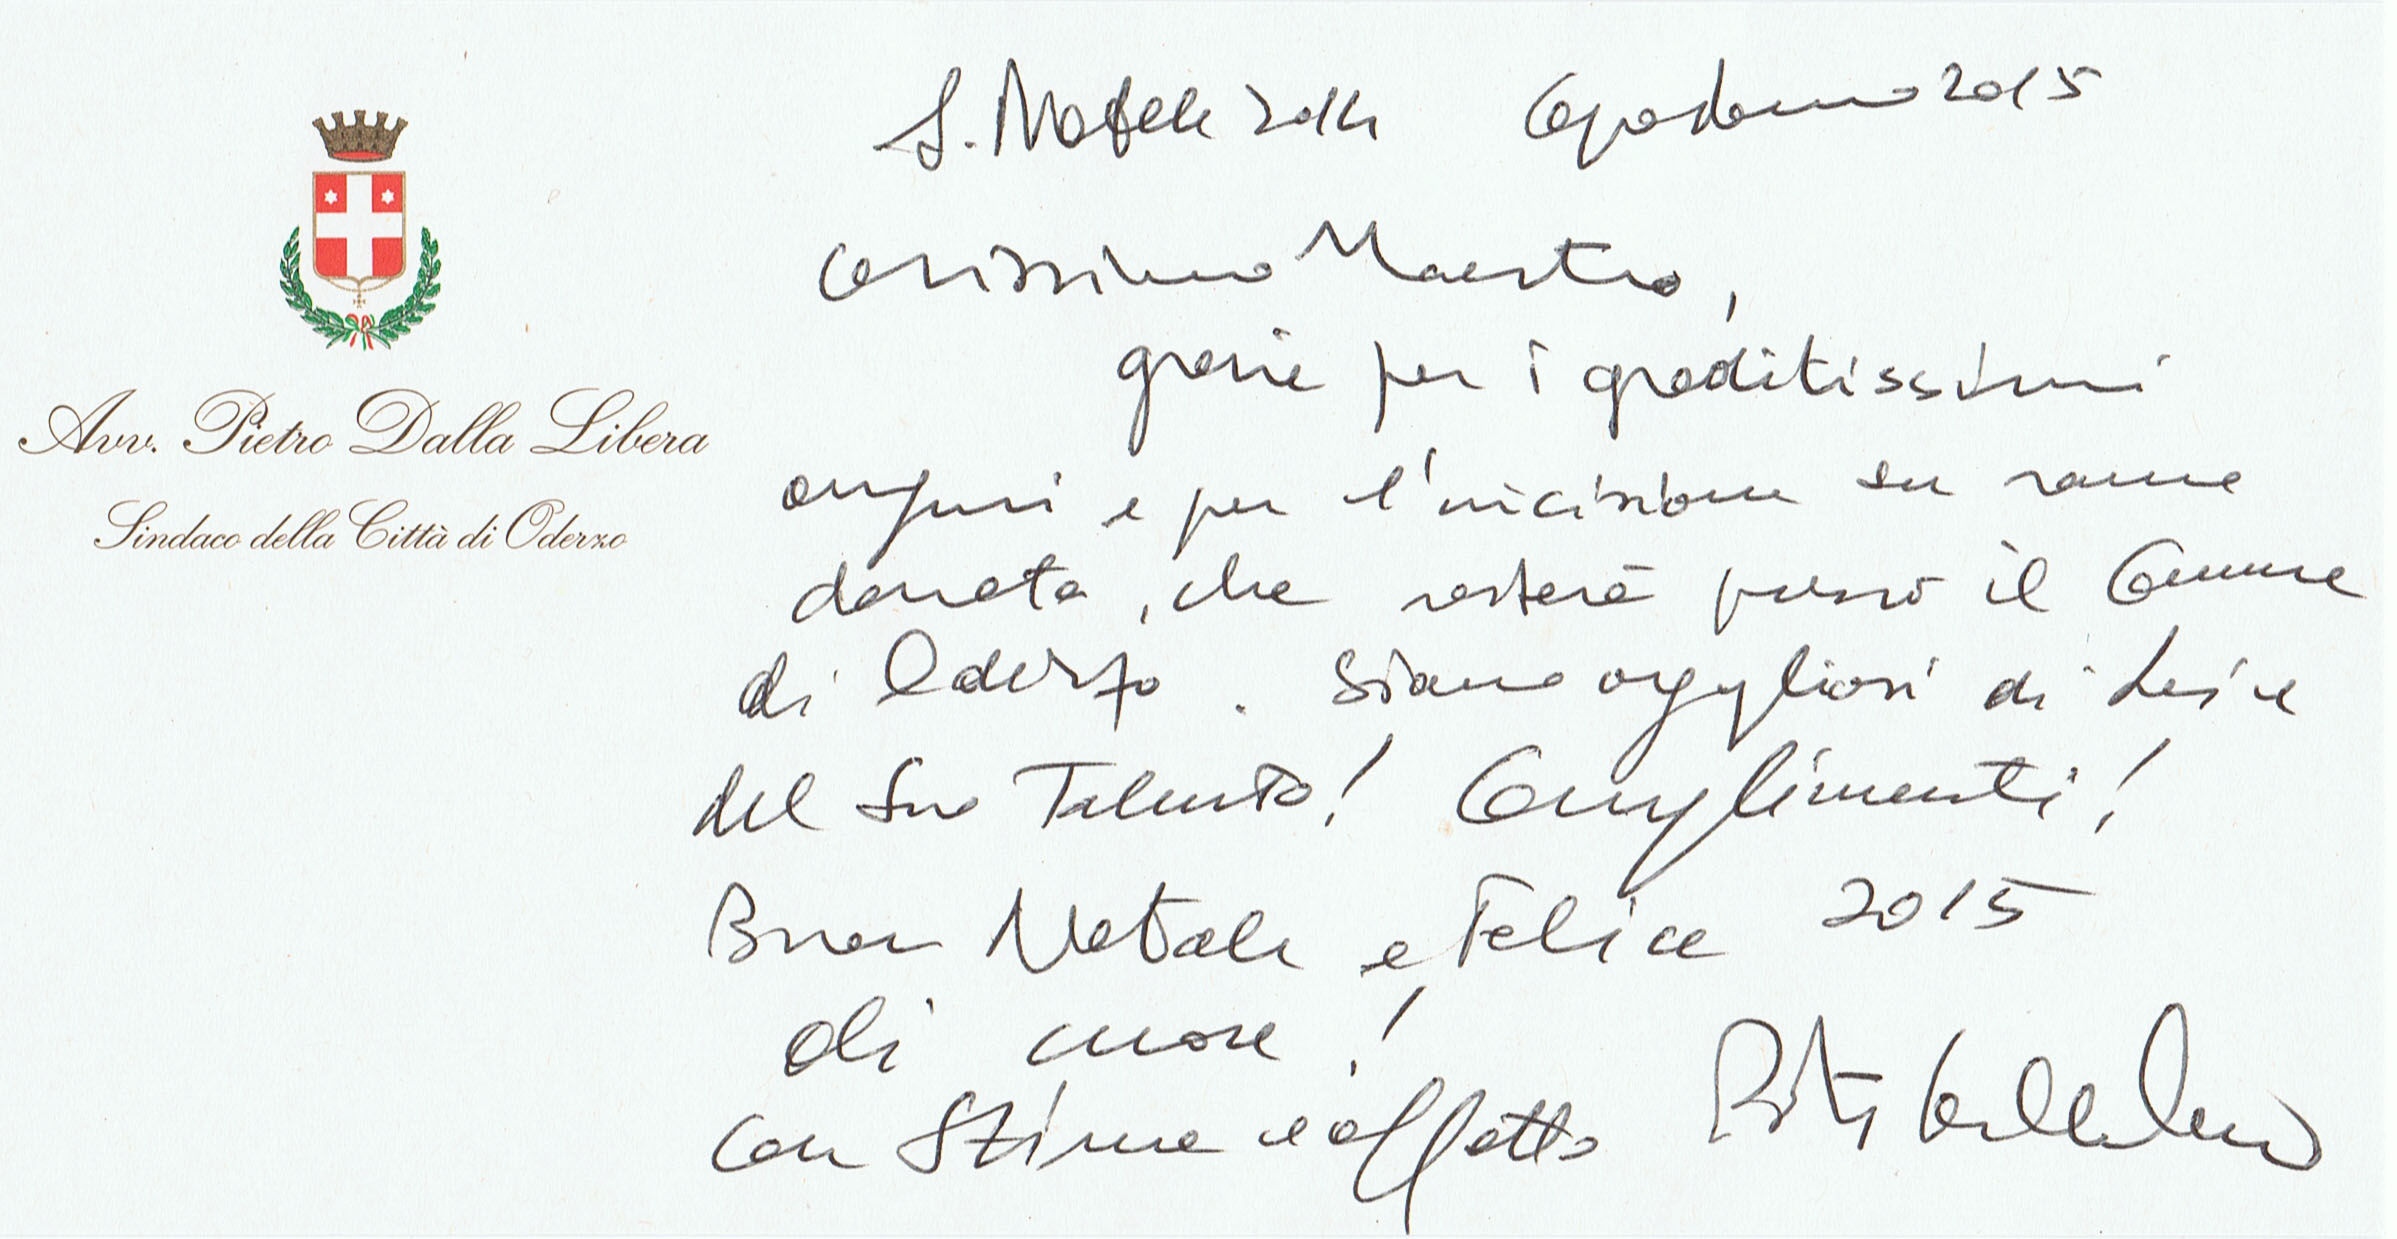 Avv. Pietro Dalla Libera
Sindaco della Città di Oderzo
S. Natale 2014 Capodanno 2015
Carissimo Maestro,
grazie per i graditissimi
auguri e per l'incisione su rame
donata, che resterà presso il Comune
di Oderzo. Siamo orgogliosi di Lei e
del Suo Talento! Complimenti!
Buon Natale e Felice 2015
di cuore!
Con Stima e affetto